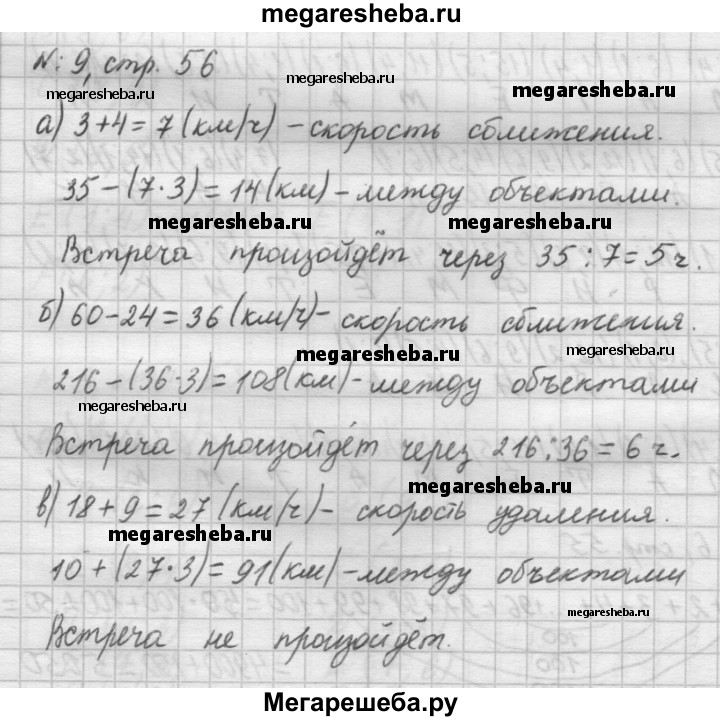 megaresheba.ru
№: 9, стр. 56
megaresheba.ru
megaresheba.ru
megaresheba.ru
а) 3+4=7 (км/ч) - скорость сближения.
35-(7·3)=14(км)-между объектами.
megaresheba.ru
megaresheba.ru
Встреча произойдёт через 35:7=5 ч.
б) 60-24=36 (км/ч)- скорость сближения.
megaresheba.ru
megaresheba.ru
216-(36·3)=108(км)-между объектами
megaresheba.ru
Встреча произойдёт через 216:36=6 ч.
megaresheba.ru
в) 18+9=27 (км/ч)- скорость удаления.
megaresheba.ru
10+(27·3)=91(км)-между объектами
megaresheba.ru
Встреча не произойдёт.
Мегарешеба.ру